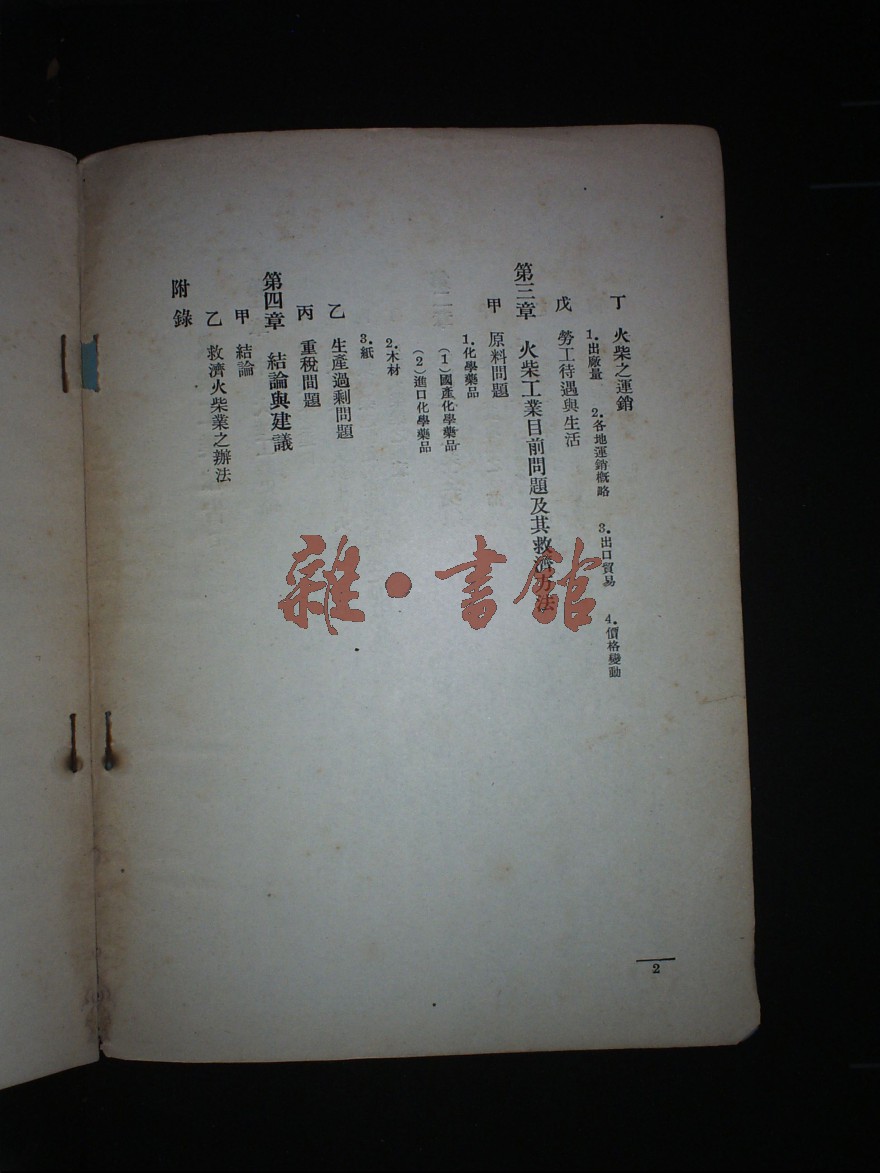 丁 火柴之運銷
1.出廠量 2.各地運銷概略 3.出口貿易 4.價格變動
戊 勞工待遇與生活
第三章 火柴工業目前問題及其救濟方法
甲 原料問題
1.化學藥品
(1)國產化學藥品
(2)進口化學藥品
2.木材
3.紙
乙 生產過剩問題
丙 重稅問題
第四章 結論與建議
甲 結論
乙 救濟火柴業之辦法
附錄
2
雜·書館